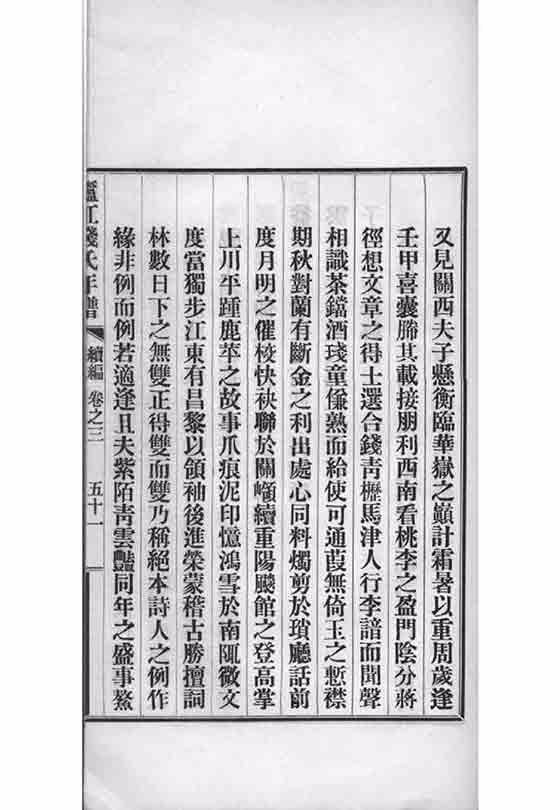 又見關西夫子懸衡臨華嶽之巔計霜暑以重周歲逢
壬甲喜囊縢其載接朋利西南看桃李之盈門陰分蔣
徑想文章之得士選合錢靑櫪馬津人行李諳而聞聲
相識茶鐺酒琖童傔熟而給使可通葭無倚玉之慙襟
期秋對蘭有斷金之利出處心同料燭剪於瑣廳話前
度月明之催校快袂聯於關嶺續重陽颷館之登高掌
上川平踵鹿苹之故事爪痕泥印憶鴻雪於南陬微文
度當獨步江東有昌黎以領袖後進榮蒙稽古勝擅詞
林數日下之無雙正得雙而雙乃稱絕本詩人之例作
緣非例而例若適逢丑夫紫陌靑雲豔同年之盛事鰲
江錢氏年譜 續編 卷之三 五十一